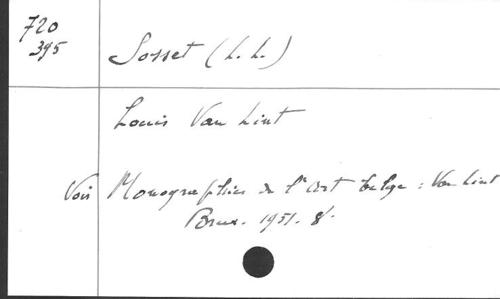 720
395
Sosset (L. L.)
Louis Van Lint
Voir Monographies de l'art belge : Van Lint
Brux. 1951. 8°.